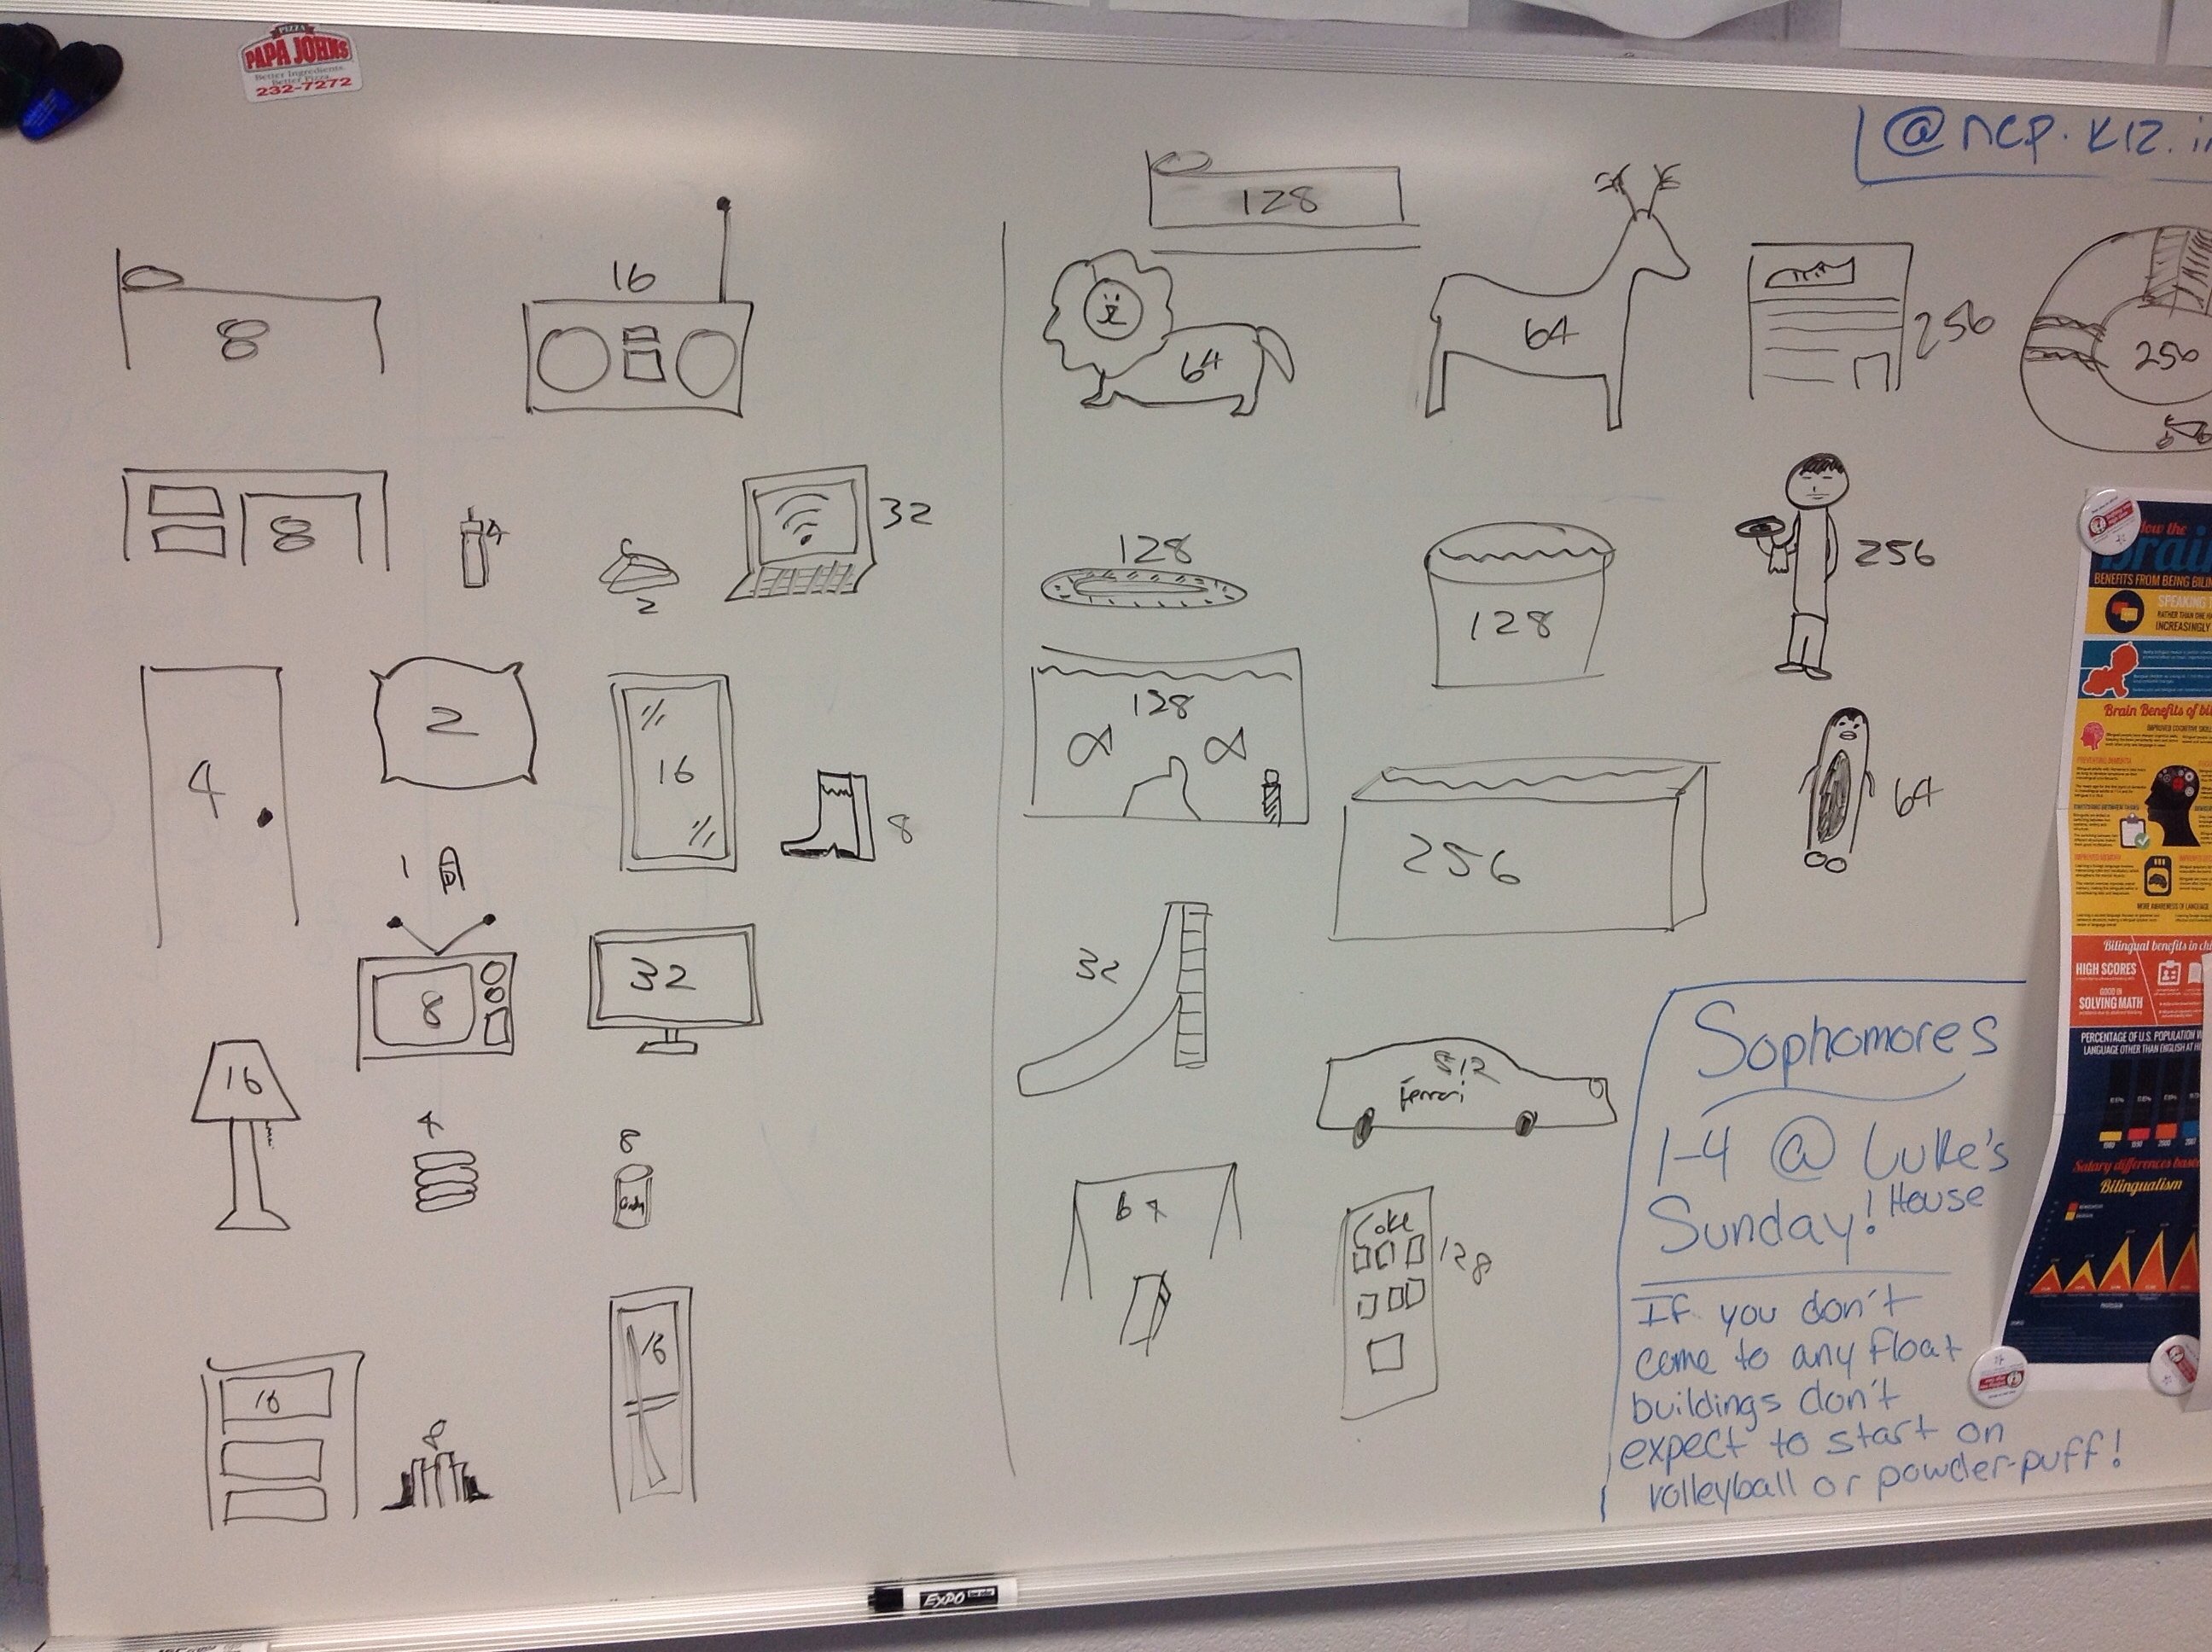 PIZZA
PAPA JOHNS
Better Ingredients.
Better Pizza.
232-7272
@ncp.k12.i
128
16
8
64
64
256
256
8
4
2
32
128
128
256
4
2
16
8
128
64
1
256
8
32
32
16
512
Ferrari
4
8
64
Coke
128
16
16
8
Sophomores
1-4 @ Luke's
House
Sunday!
If you don't
come to any float
buildings don't
expect to start on
volleyball or powder-puff!
EXPO
How the
Brain
BENEFITS FROM BEING BILIN
SPEAKING
INCREASINGLY
Brain Benefits of bi
Bilingual benefits in chi
HIGH SCORES
GOOD IN
SOLVING MATH
PERCENTAGE OF U.S. POPULATION W
LANGUAGE OTHER THAN ENGLISH AT H
Salary differences bas
Bilingualism